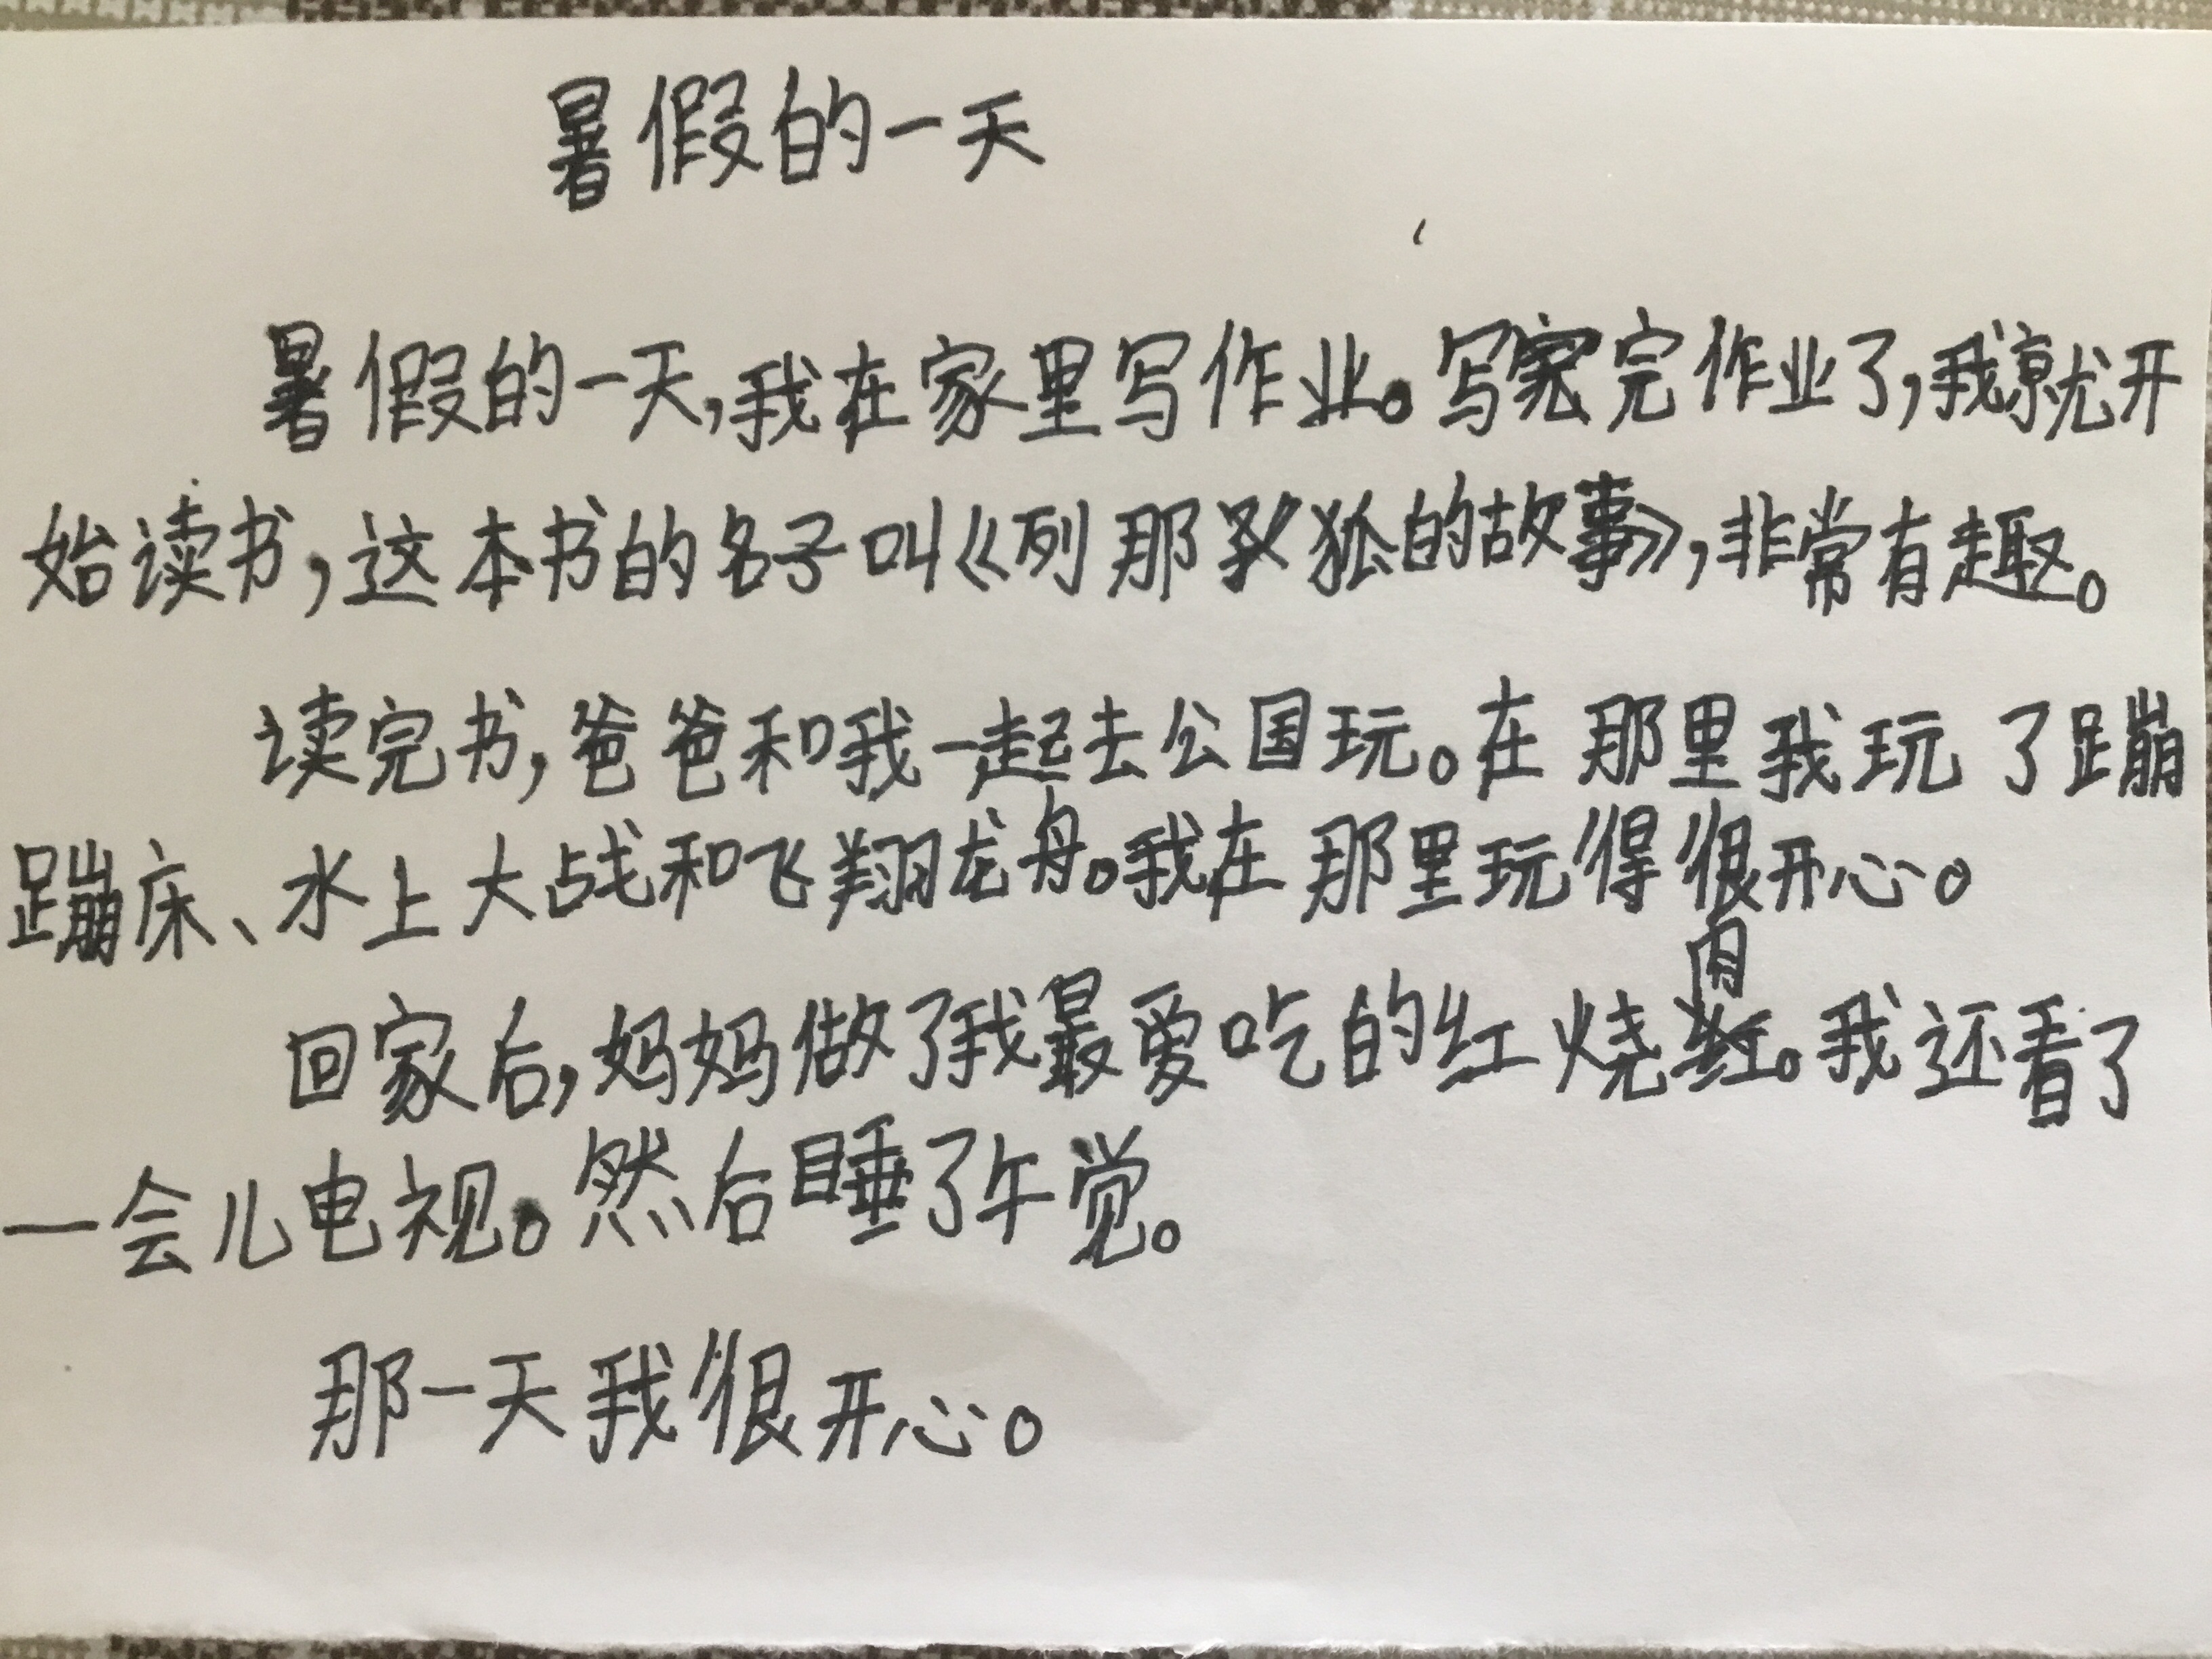 暑假的一天
暑假的一天,我在家里写作业。写完作业了,我就开
始读书,这本书的名子叫《列那狐的故事》,非常有趣。
读完书,爸爸和我一起去公国玩。在那里我玩了蹦
蹦床、水上大战和飞翔龙舟。我在那里玩得很开心。
回家后,妈妈做了我最爱吃的红烧肉。我还看了
一会儿电视。然后睡了午觉。
那一天我很开心。